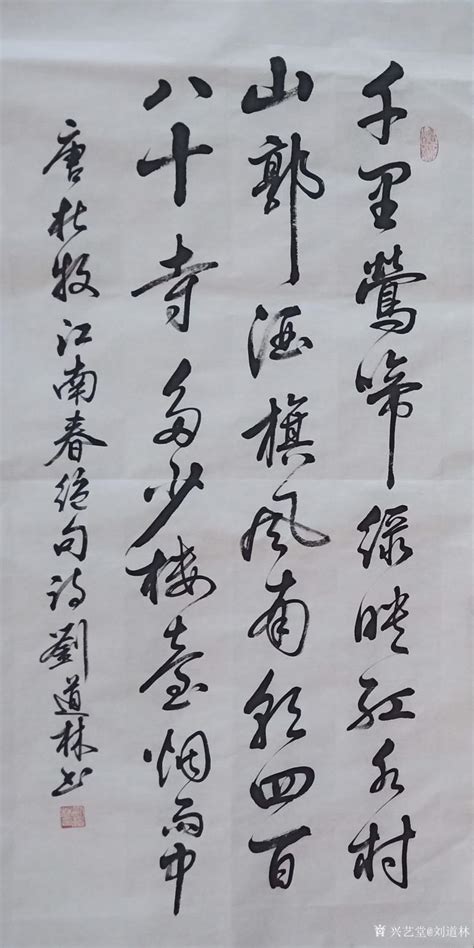 千里鶯啼绿映红水村
山郭酒旗风南朝四百
八十寺多少楼臺烟雨中
唐杜牧江南春绝句诗劉道林书
兴艺堂@刘道林